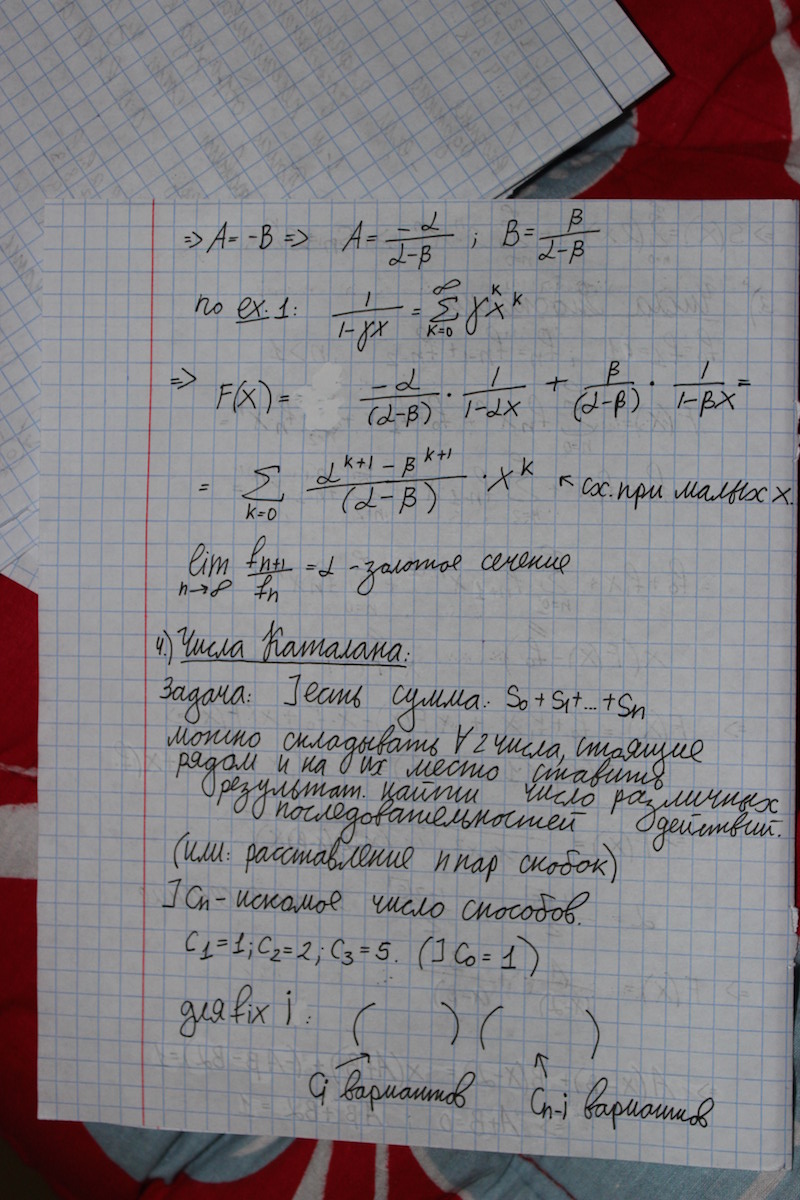 => A = -B => A = -α/(α-β) ; B = β/(α-β)
по ex. 1: 1/(1-γx) = ∑_{k=0}^{∞} γ^k x^k
=> F(x) = -α/(α-β) · 1/(1-αx) + β/(α-β) · 1/(1-βx) =
= ∑_{k=0} (α^{k+1} - β^{k+1})/(α-β) · x^k ↖ сх. при малых x.
lim_{n→∞} f_{n+1}/f_n = α - золотое сечение
4.) Числа Каталана:
Задача: ] есть сумма: S₀ + S₁ + ... + Sn
можно складывать ∀ 2 числа, стоящие
рядом и на их место ставить
результат. найти число различных
последовательностей действий.
(или: расставление n пар скобок)
] Cn - искомое число способов.
C₁ = 1; C₂ = 2; C₃ = 5. (] C₀ = 1)
для fix i : ( ) ( )
Ci вариантов Cn-i вариантов